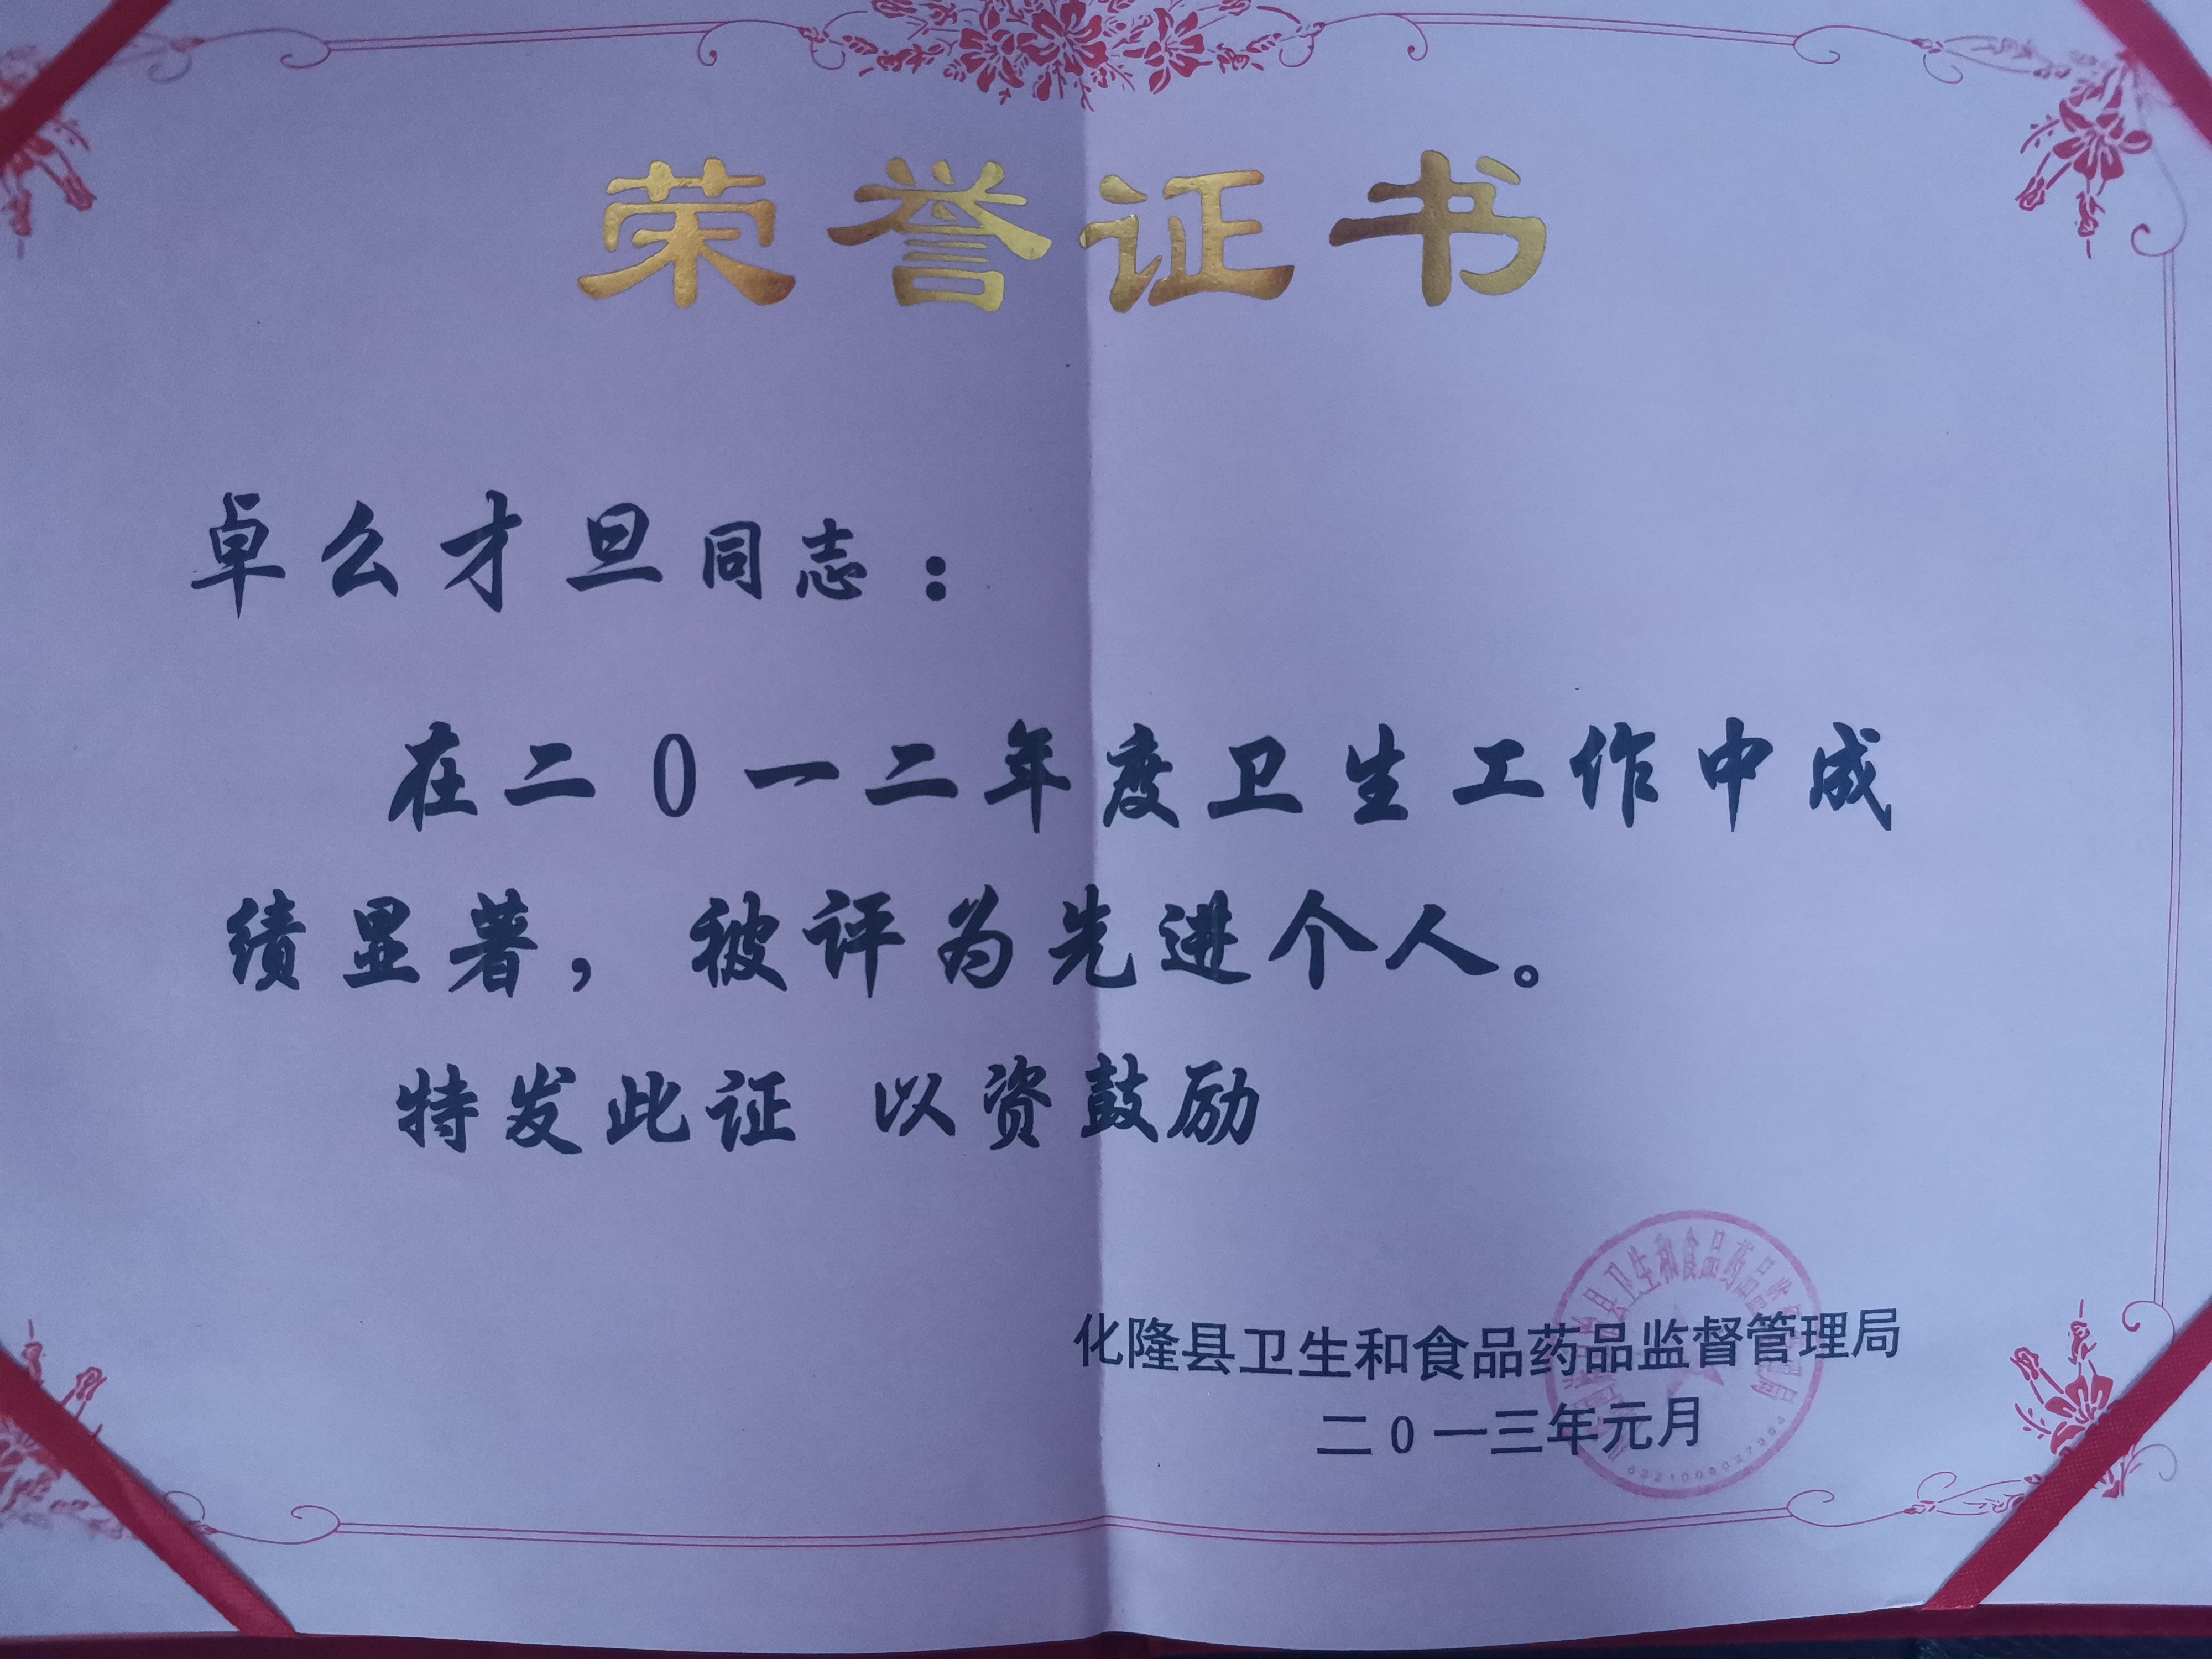 荣誉证书
卓么才旦同志：
在二0一二年度卫生工作中成
绩显著，被评为先进个人。
特发此证 以资鼓励
化隆县卫生和食品药品监督管理局
二0一三年元月